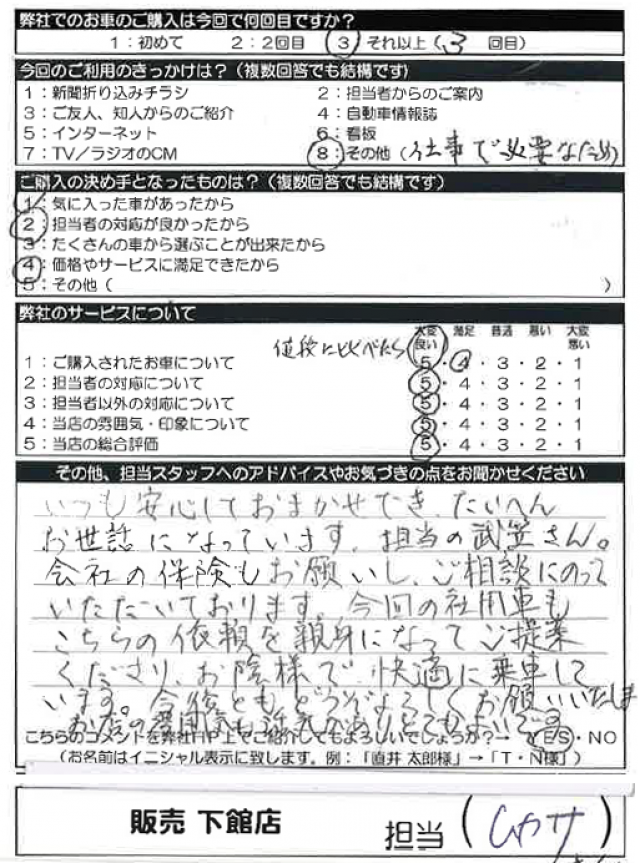 弊社でのお車のご購入は今回で何回目ですか？
1：初めて 2：2回目 3：それ以上（3 回目）
今回のご利用のきっかけは？（複数回答でも結構です）
1：新聞折り込みチラシ 2：担当者からのご案内
3：ご友人、知人からのご紹介 4：自動車情報誌
5：インターネット 6：看板
7：TV／ラジオのCM 8：その他（仕事で必要なため）
ご購入の決め手となったものは？（複数回答でも結構です）
1：気に入った車があったから
2：担当者の対応が良かったから
3：たくさんの車から選ぶことが出来たから
4：価格やサービスに満足できたから
5：その他（ ）
弊社のサービスについて
大変良い 満足 普通 悪い 大変悪い
値段にくらべたら
1：ご購入されたお車について 5・4・3・2・1
2：担当者の対応について 5・4・3・2・1
3：担当者以外の対応について 5・4・3・2・1
4：当店の雰囲気・印象について 5・4・3・2・1
5：当店の総合評価 5・4・3・2・1
その他、担当スタッフへのアドバイスやお気づきの点をお聞かせください
いつも安心しておまかせでき、たいへん
お世話になっています。担当の武笠さん。
会社の保険もお願いし、ご相談にのって
いただいております。今回の社用車も
こちらの依頼を親身になってご提案
くださり、お陰様で快適に乗車して
います。今後ともどうぞよろしくお願いいたしま
こちらのコメントを弊社HP上でご紹介してもよろしいでしょうか？→ YES・NO
（お名前はイニシャル表示に致します。例：「直井 太郎様」→「T・N様」）
販売 下館店 担当（ ）